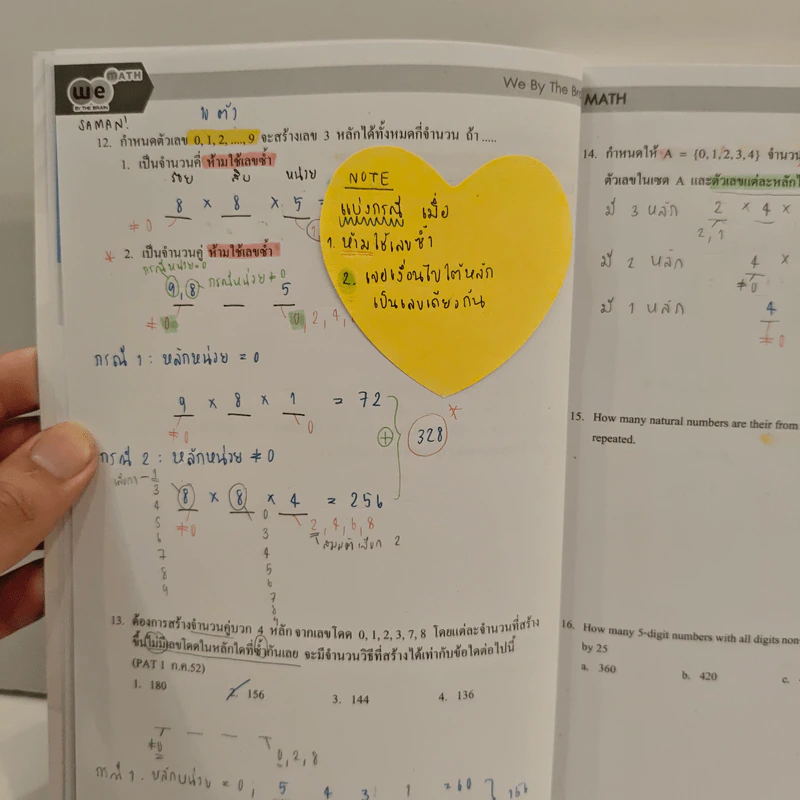 We MATH
BY THE BRAIN
SAMAN!
We By The Br
10 ตัว
12. กำหนดตัวเลข 0, 1, 2, ...., 9 จะสร้างเลข 3 หลักได้ทั้งหมดกี่จำนวน ถ้า .....
1. เป็นจำนวนคี่ ห้ามใช้เลขซ้ำ
ร้อย สิบ หน่วย
8 × 8 × 5 =
≠ 0
* 2. เป็นจำนวนคู่ ห้ามใช้เลขซ้ำ
กรณีหน่วย=0
กรณีหน่วย ≠ 0
9, 8 5
≠ 0 0, 2, 4,
NOTE
แบ่งกรณี เมื่อ
1. ห้ามใช้เลขซ้ำ
2. เจอเงื่อนไขใต้หลัก
เป็นเลขเดียวกัน
กรณี 1 : หลักหน่วย = 0
9 × 8 × 1 = 72
≠0 0
328 *
กรณี 2 : หลักหน่วย ≠ 0
8 × 8 × 4 = 256
≠0 2, 4, 6, 8
สมมติ เลือก 2
1
3
4
5
6
7
8
9
0
3
4
5
6
7
8
13. ต้องการสร้างจำนวนคู่บวก 4 หลัก จากเลขโดด 0, 1, 2, 3, 7, 8 โดยแต่ละจำนวนที่สร้าง
ขึ้นไม่มีเลขโดดในหลักใดที่ซ้ำกันเลย จะมีจำนวนวิธีที่สร้างได้เท่ากับข้อใดต่อไปนี้
(PAT 1 ก.ค.52)
1. 180 2. 156 3. 144 4. 136
≠0 0, 2, 8
กรณี 1. หลักหน่วย = 0, 5 4 3 1 = 60 156
MATH
14. กำหนดให้ A = {0, 1, 2, 3, 4} จำนวน
ตัวเลขในเซต A และตัวเลขแต่ละหลักไ
มี 3 หลัก 2 × 4 ×
2, 1
มี 2 หลัก 4 ×
≠0
มี 1 หลัก 4
≠0
15. How many natural numbers are their from
repeated.
16. How many 5-digit numbers with all digits non
by 25
a. 360 b. 420 c.